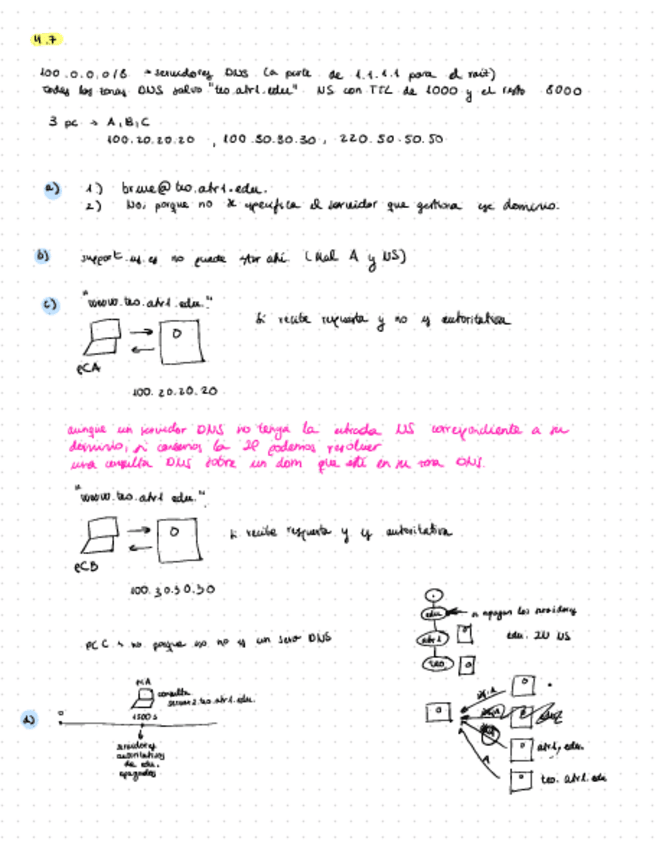 4.7
100.0.0.0/8 → servidores DNS (a parte de 1.1.1.1 para el raíz)
todas las zonas DNS salvo "teo.atr1.edu" NS con TTL de 1000 y el resto 8000
3 pc → A, B, C
100.20.20.20 , 100.30.30.30 , 220.50.50.50
a) 1) bruce@teo.atr1.edu.
2) No, porque no se especifica el servidor que gestiona ese dominio.
b) support.us.es no puede estar ahí (Mal A y NS)
c) "www.teo.atr1.edu."
Sí recibe respuesta y no es autoritativa
PCA
100.20.20.20
aunque un servidor DNS no tenga la entrada NS correspondiente a su
dominio, si conocemos la IP podemos resolver
una consulta DNS sobre un dom que esté en su zona DNS.
"www.teo.atr1.edu."
Sí recibe respuesta y es autoritativa
PCB
100.30.30.30
PCC → no porque eso no es un serv DNS
.
edu
atr1
teo
se apagan los servidores
edu. IN NS
d)
0
PCA
consulta
server2.teo.atr1.edu.
1500 s
servidores
autoritativos
de edu.
apagados
A
atr1.edu.
teo.atr1.edu